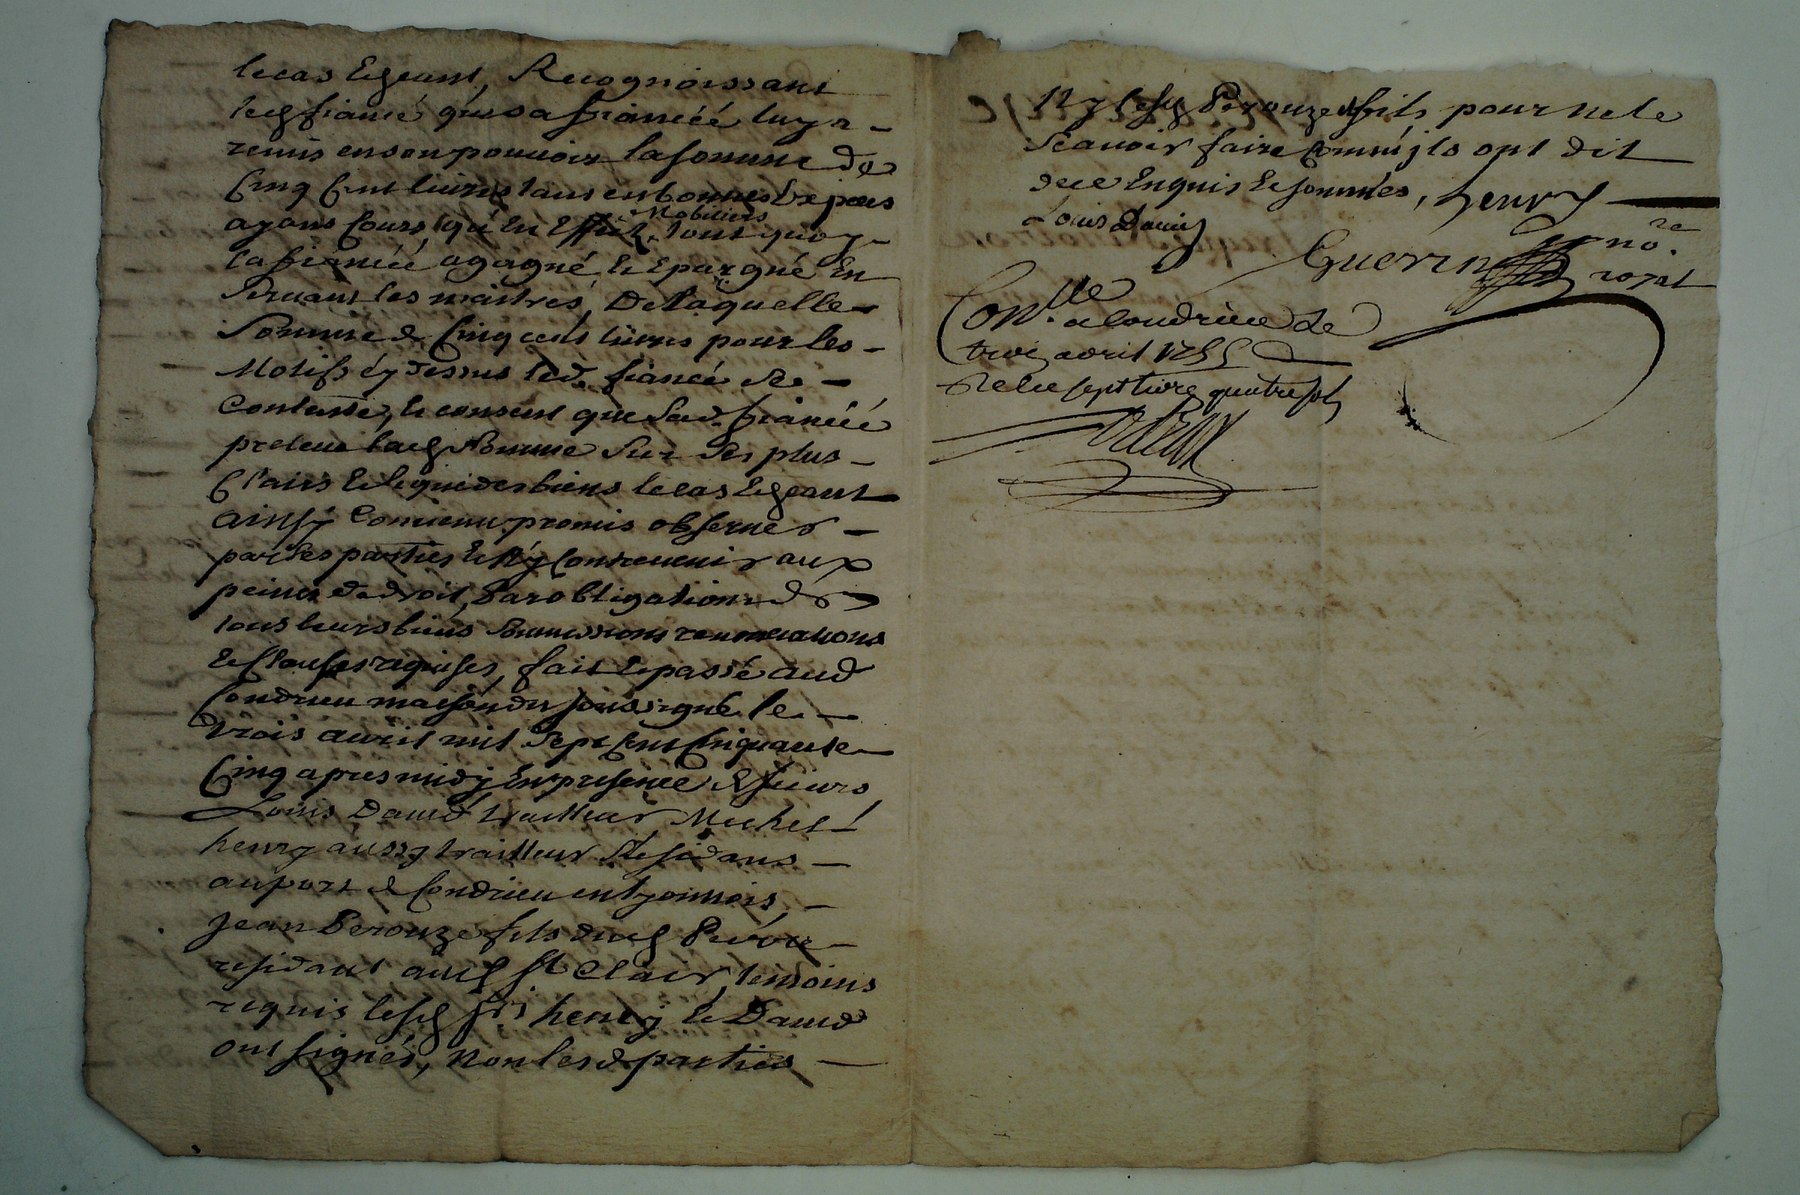 le cas Echeant, Recognoissant
led fiancé que sa fianceé luy a
remis en son pouvoir la somme de
Cinq Cent livres tant en bonnes Especes
ayans Cours qu'En Effets Mobiliers tout quoy
la fianceé a gagné & Epargné En
servant les maitres, De laquelle
Somme de Cinq cents livres pour les
Motifs cy dessus led. fiancé se
Contente, & consent que sad. fianceé
preleve lad Somme sur ses plus
Clairs & liquides biens le cas Echeant
ainsy Convenu promis observer
par les parties & N'y Contrevenir aux
peines de droit, par obligation de
tous leurs biens Soumissions renonciations
& Clauses requises, fait & passé aud
Condrieu maison du soussigné le
trois avril mil sept Cent Cinquante
Cinq apres midy En presence de sieurs
Louis David trailleur Michel
henry aussy trailleur Residans
au port de Condrieu en Lyonnois,
Jean Perouze fils dud Pierre
residant aud St Clair, temoins
requis lesd Srs henry & David
ont signés, Non lesd parties
Ny lesd Perouze fils pour ne le
Scavoir faire Comme ils ont dit
de ce Enquis & sommés, henry
Louis David
Guerin nore.
royal
Conlle a Condrieu le
trois avril 1755
Recu sept livre quatre sol